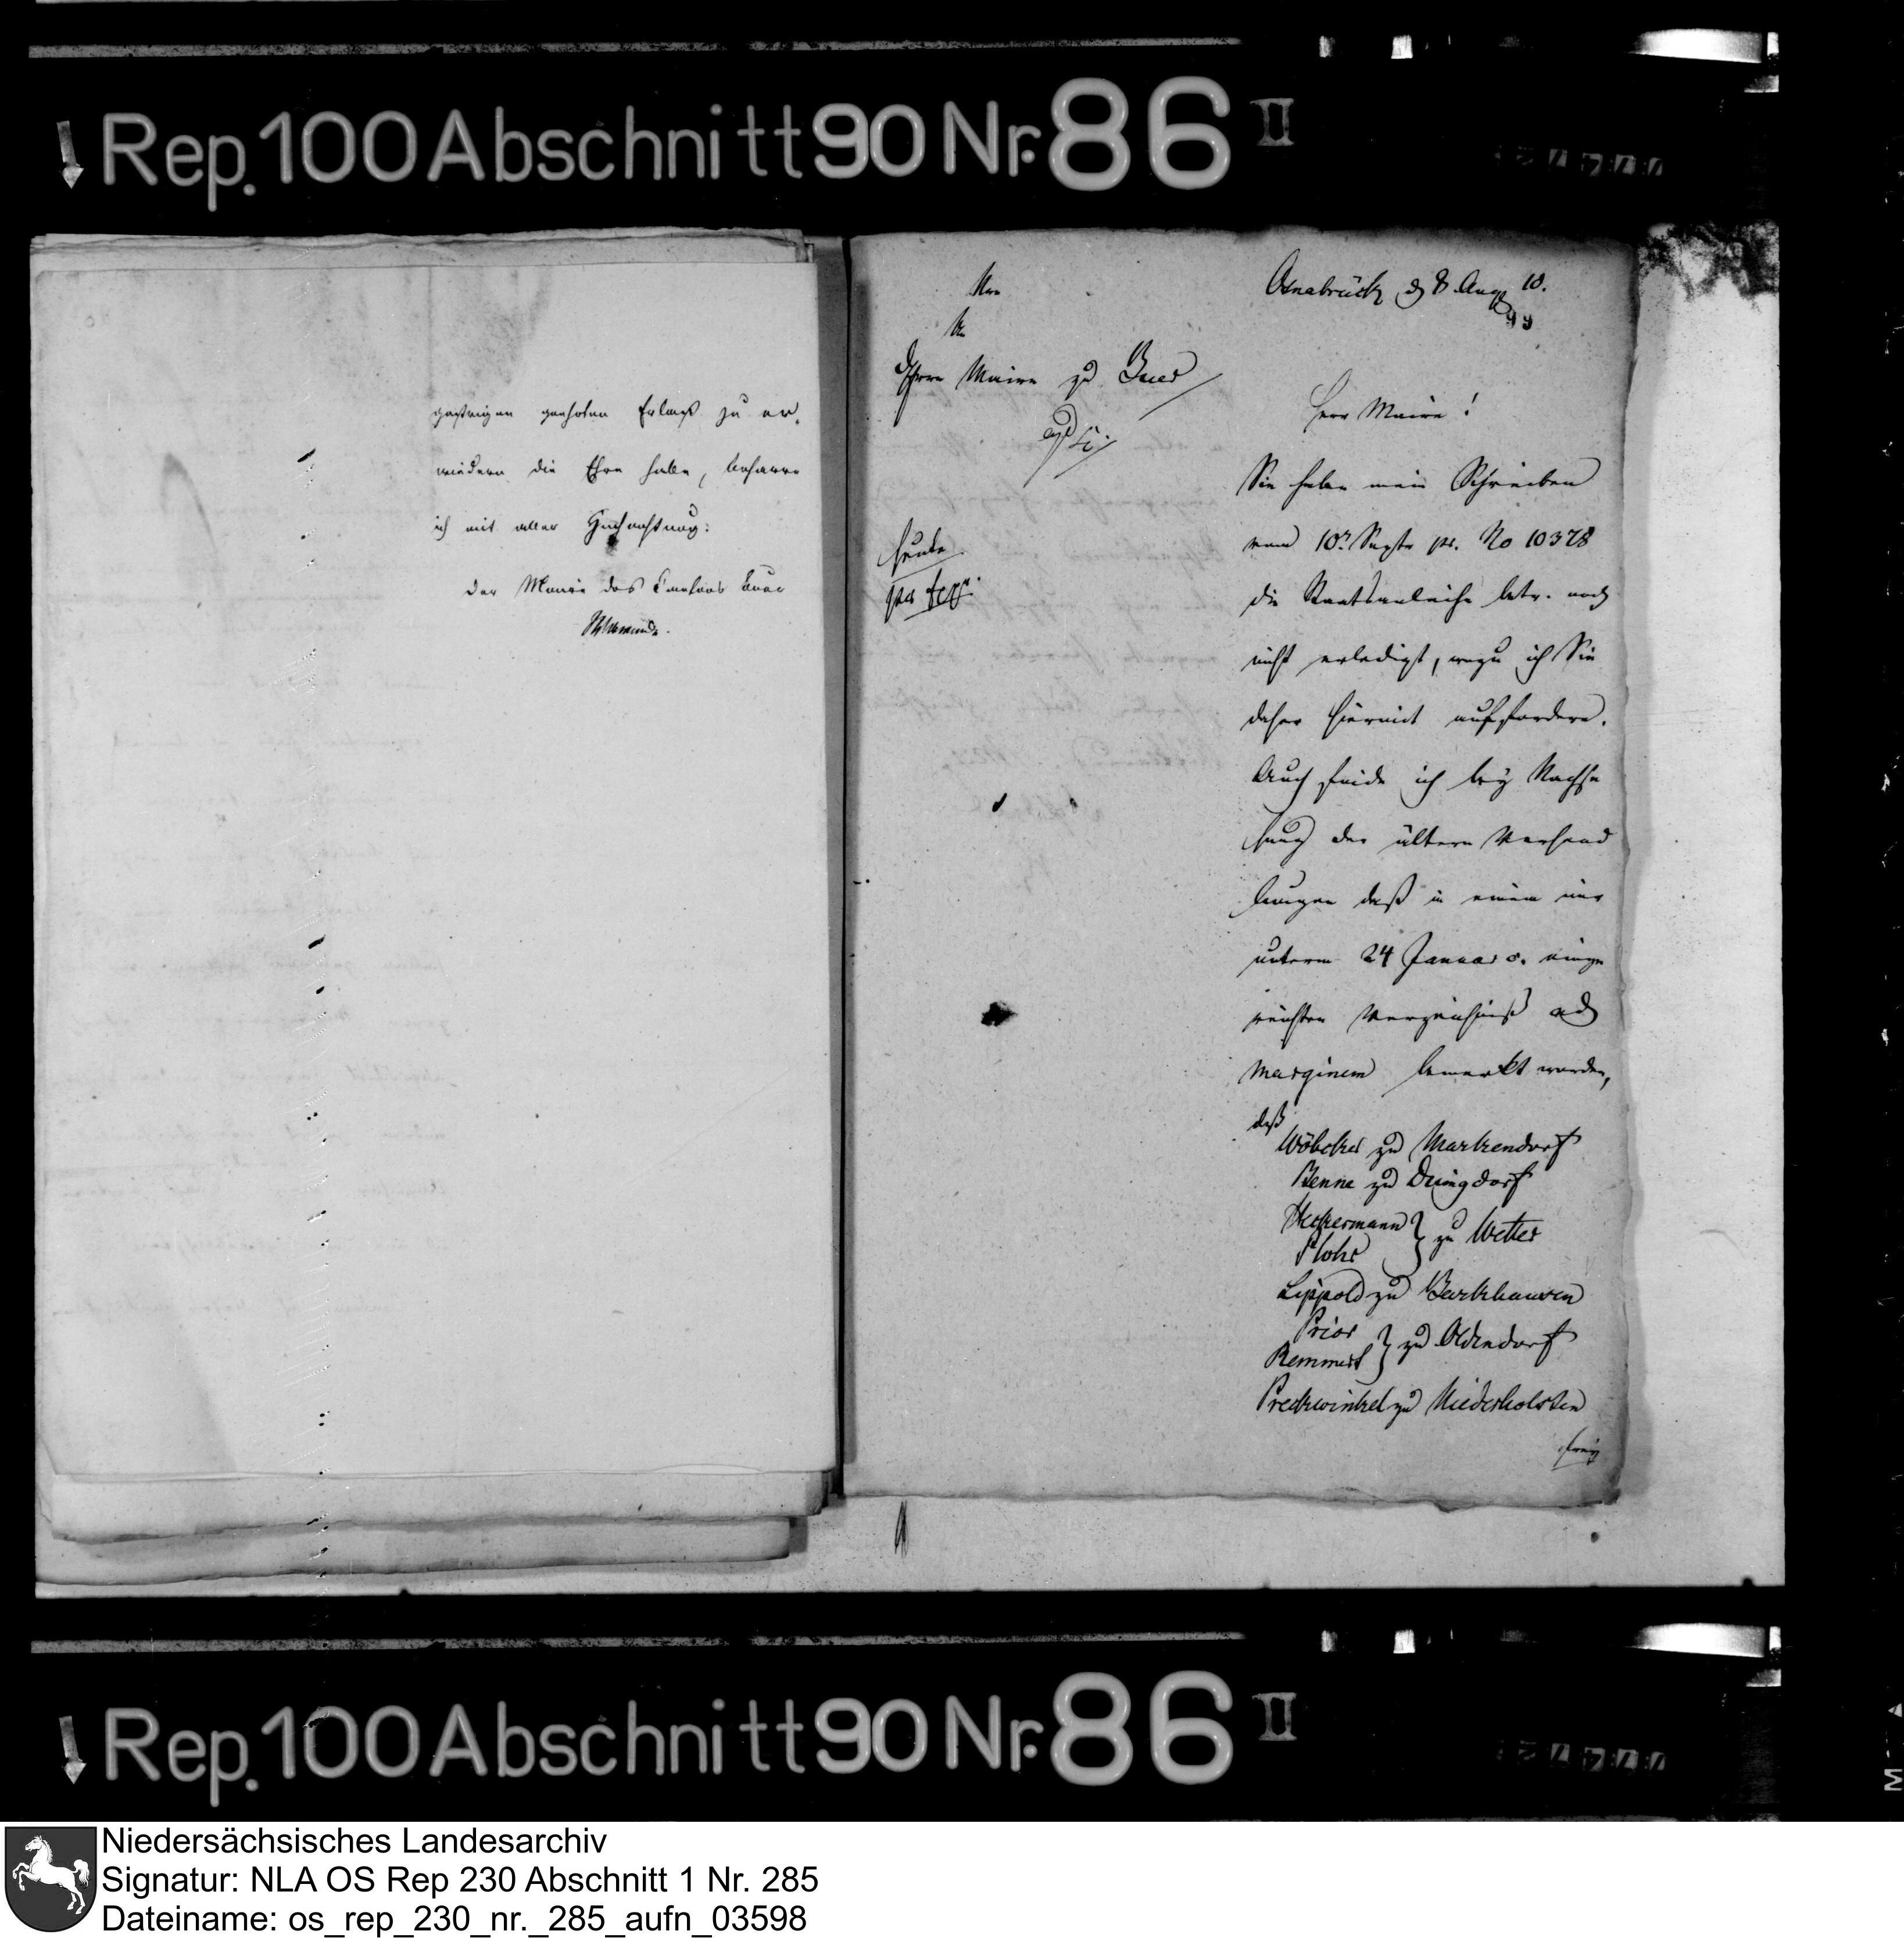 Rep. 100 Abschnitt 90 Nr. 86 II
gestrigen geehrten Erlaß zu er¬
wiedern die Ehre habe, beharre
ich mit aller Hochachtung.
Der Maire des Cantons Buer
An
Herrn Maire zu Buer
heute
Osnabrück d 8 Aug 10.
99
Herr Maire!
Sie haben mein Schreiben
vom 10n Septr pr. No 10378
die Staatsanleihe betr. noch
nicht erledigt, wozu ich Sie
daher hiermit auffordere.
Auch finde ich bey Nachse
hung der ältern Verhand
lungen daß in einem mir
unterm 24 Januar c. einge
reichten Verzeichniß ad
marginem bemerkt worden,
daß
Wöbcker zu Markendorf
Benne zu Düingdorf
Heckermann } zu Wetter
Plohr
Lippold zu Barkhausen
Prior } zu Oldendorf
Remmert
Preckwinkel zu Niederholsten
Rep. 100 Abschnitt 90 Nr. 86 II
Niedersächsisches Landesarchiv
Signatur: NLA OS Rep 230 Abschnitt 1 Nr. 285
Dateiname: os_rep_230_nr._285_aufn_03598